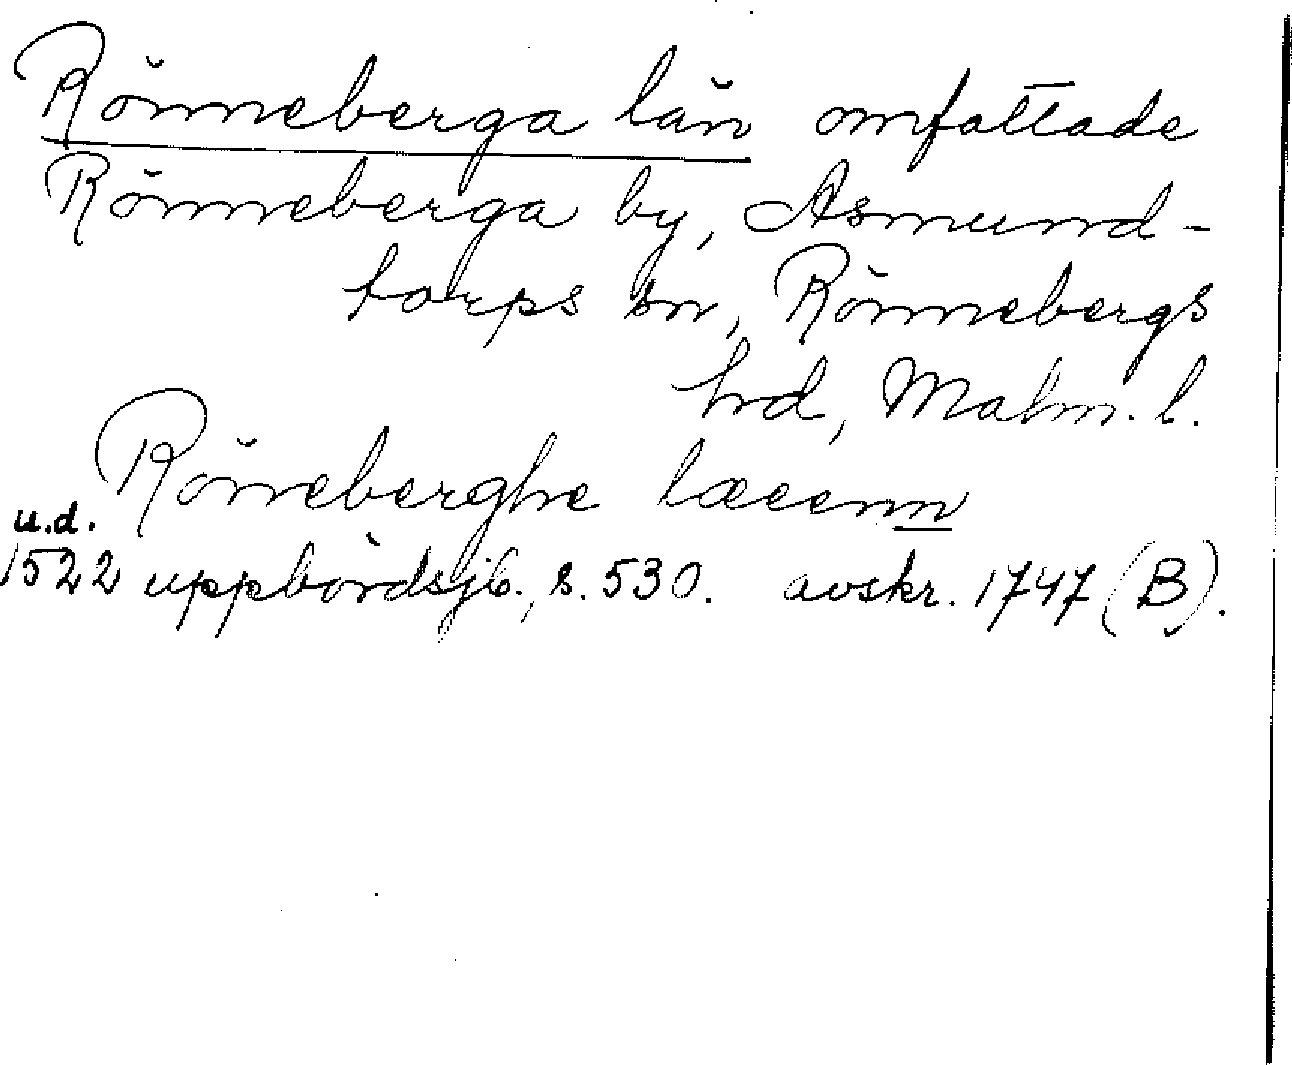 Rönneberga län omfattade
Rönneberga by, Asmund-
torps sn, Rönnebergs
hrd, Malm. l.
Rönneberghe læeenn
u.d.
1522 uppbördsjb., s. 530. avskr. 1747 (B).